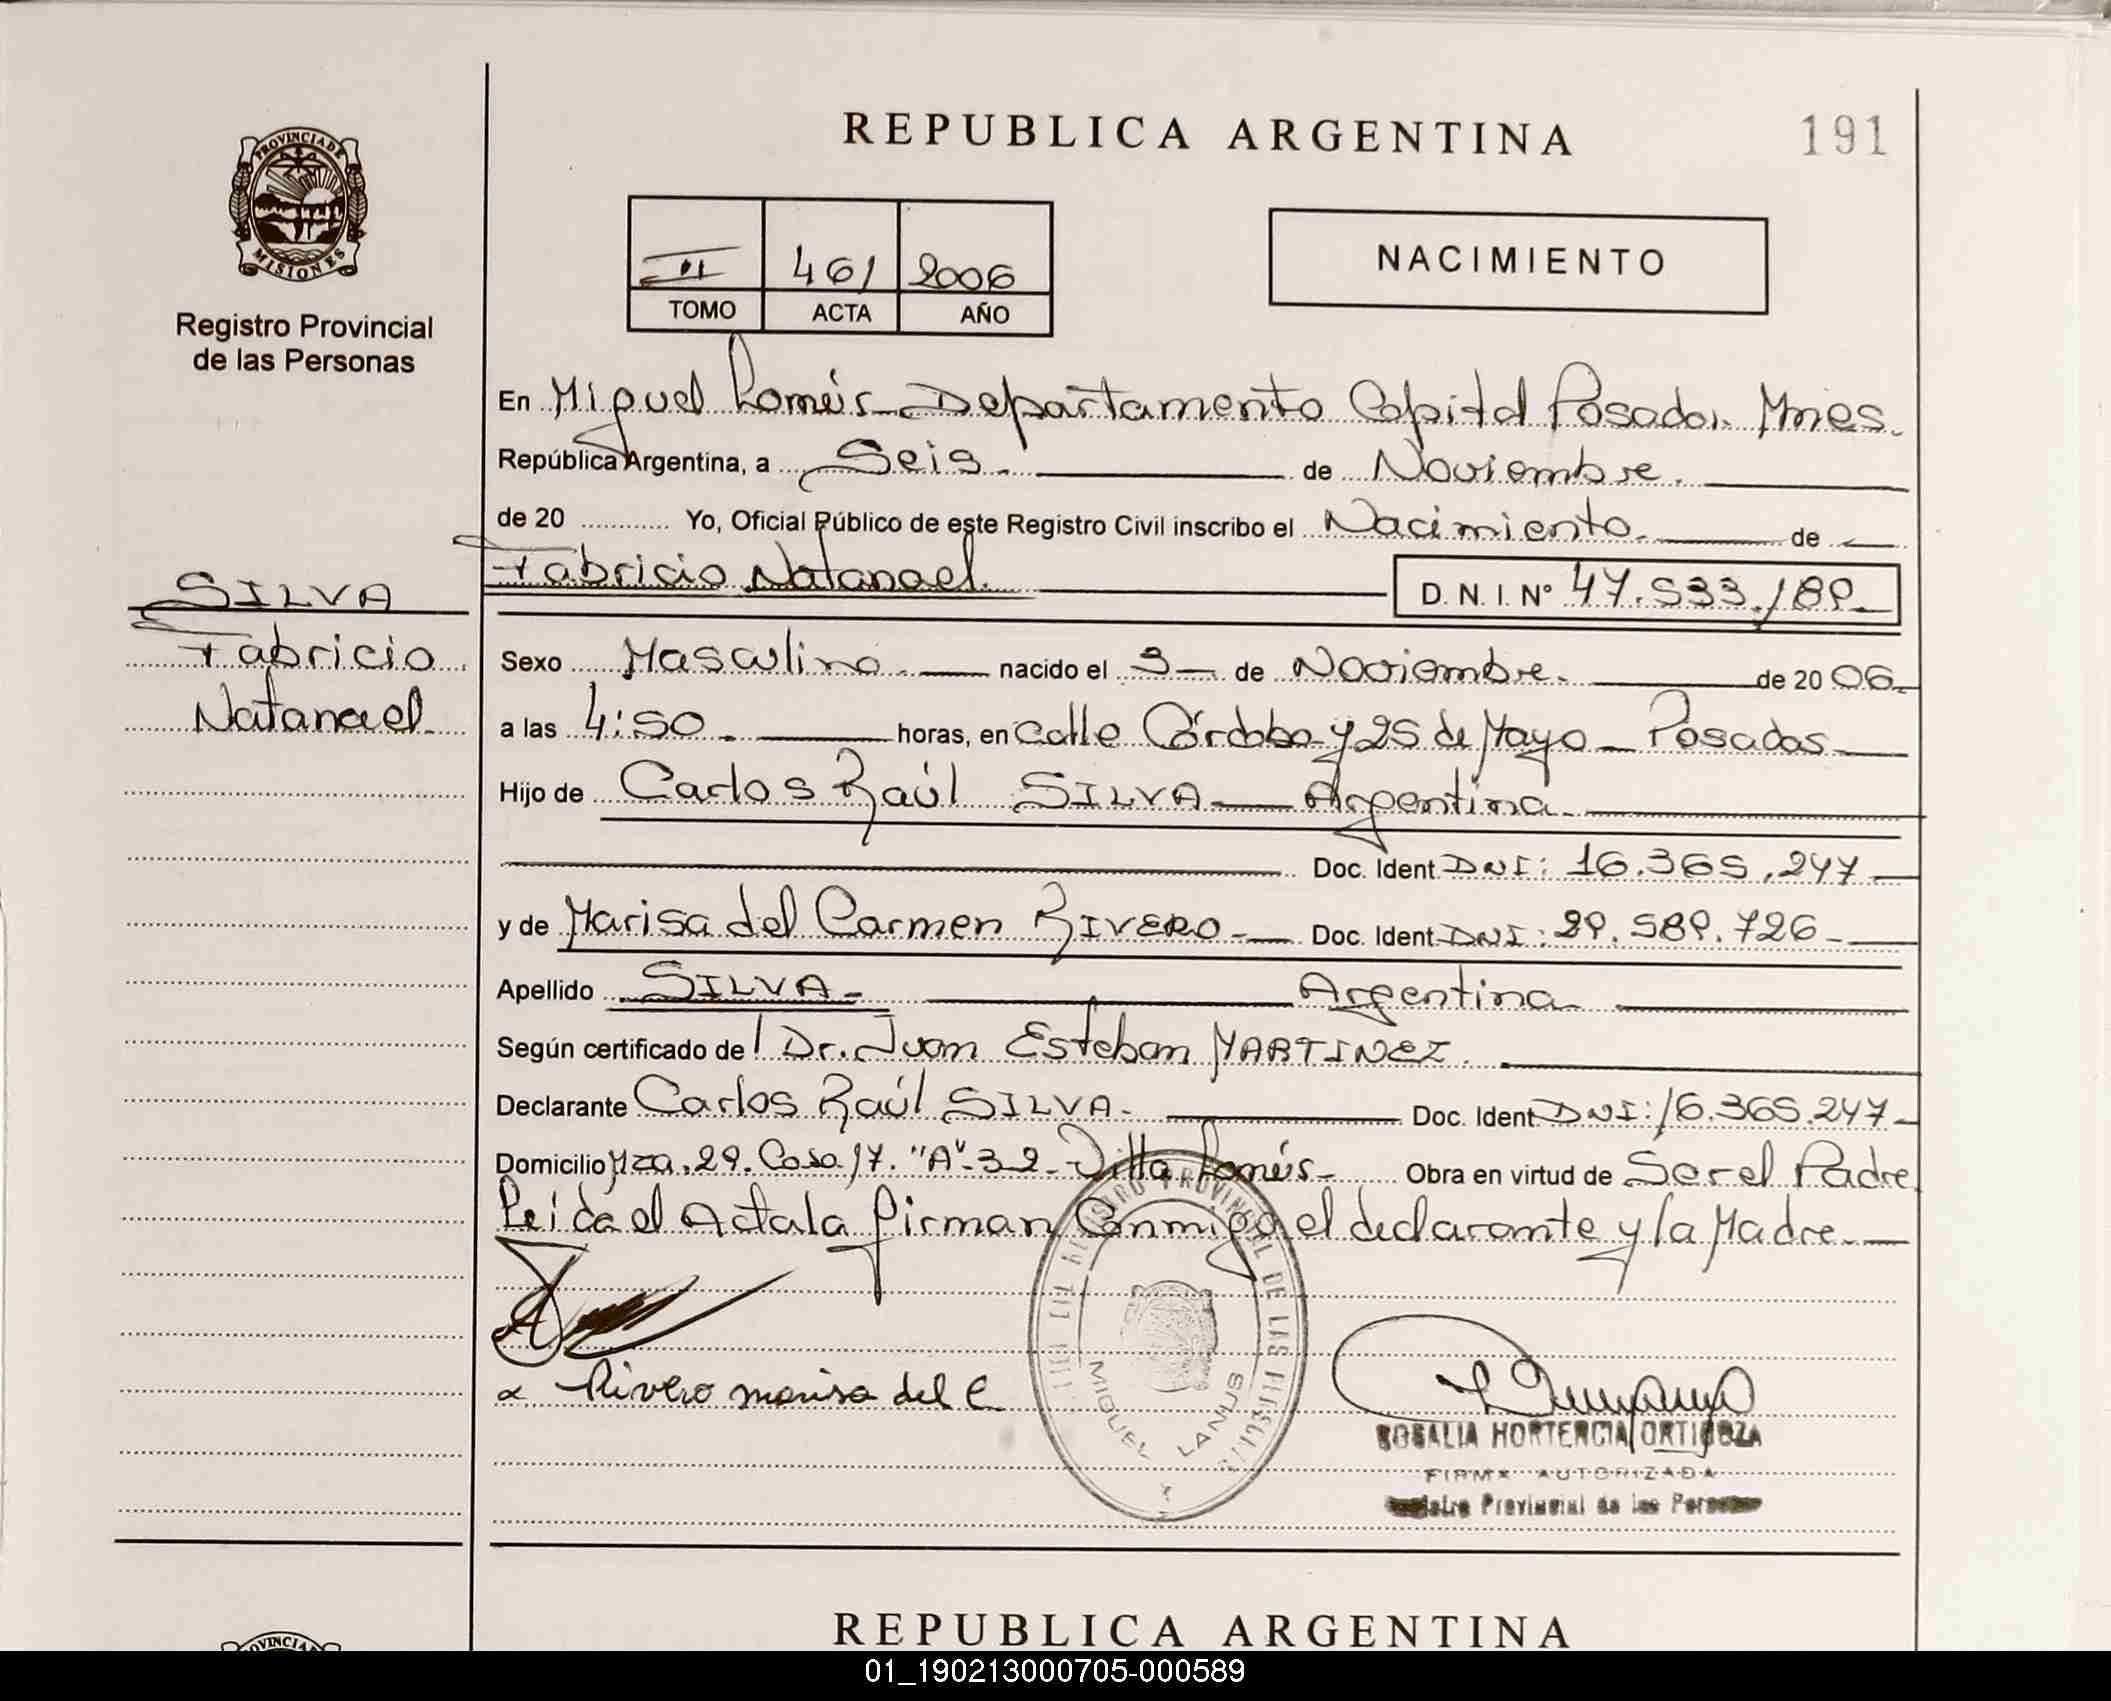 REPUBLICA ARGENTINA
191
PROVINCIA DE
MISIONES
Registro Provincial
de las Personas
II 461 2006
TOMO ACTA AÑO
NACIMIENTO
En Miguel Lanús Departamento Capital Posadas Mnes.
República Argentina, a Seis de Noviembre.
de 20 Yo, Oficial Público de este Registro Civil inscribo el Nacimiento de
Fabricio Natanael.
D. N. I. N° 47.533.189
SILVA
Fabricio
Natanael
Sexo Masculino nacido el 3 de Noviembre. de 20 06
a las 4:50 horas, en calle Córdoba y 25 de Mayo - Posadas
Hijo de Carlos Raúl SILVA Argentina
Doc. Ident DNI: 16.365.247
y de Marisa del Carmen RIVERO Doc. Ident DNI: 29.589.726
Apellido SILVA Argentina
Según certificado de Dr. Juan Esteban MARTINEZ.
Declarante Carlos Raúl SILVA Doc. Ident DNI: 16.365.247
Domicilio Mza. 29. Casa 17. "A"-32- Villa Lanús Obra en virtud de Ser el Padre
Leida el Acta la firman Conmigo el declarante y la Madre.
Rivero marisa del C
REGISTRO PROVINCIAL DE LAS PERSONAS
MIGUEL LANUS
ROSALIA HORTENCIA ORTIGOZA
FIRMA AUTORIZADA
Registro Provincial de las Personas
REPUBLICA ARGENTINA
01_190213000705-000589